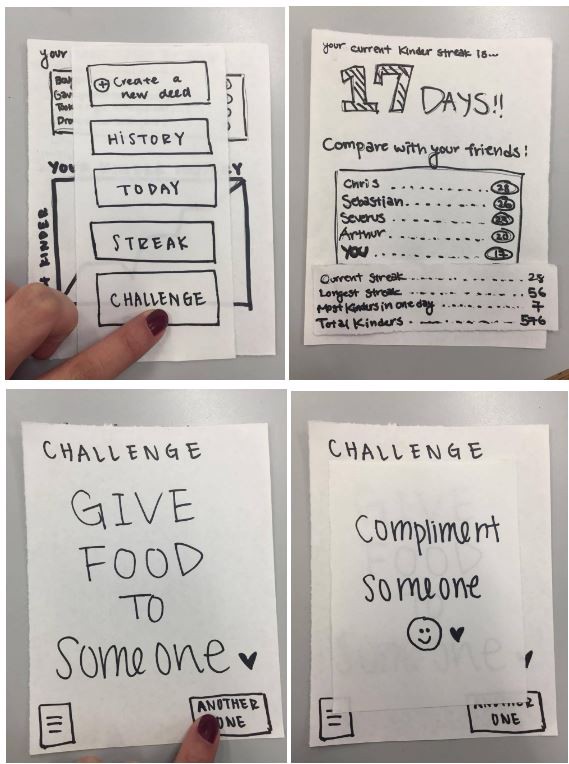 your
⊕ Create a
new deed
HISTORY
TODAY
STREAK
CHALLENGE
your current Kinder streak is...
17
DAYS!!
Compare with your friends!
Chris 28
Sebastian
Severus
Arthur 20
YOU 17
Current Streak 28
Longest Streak 56
Most Kinders in one day 7
Total Kinders 576
CHALLENGE
GIVE
FOOD
TO
Someone ♥
ANOTHER
ONE
CHALLENGE
Compliment
Someone
☺ ♥
ANOTHER
ONE